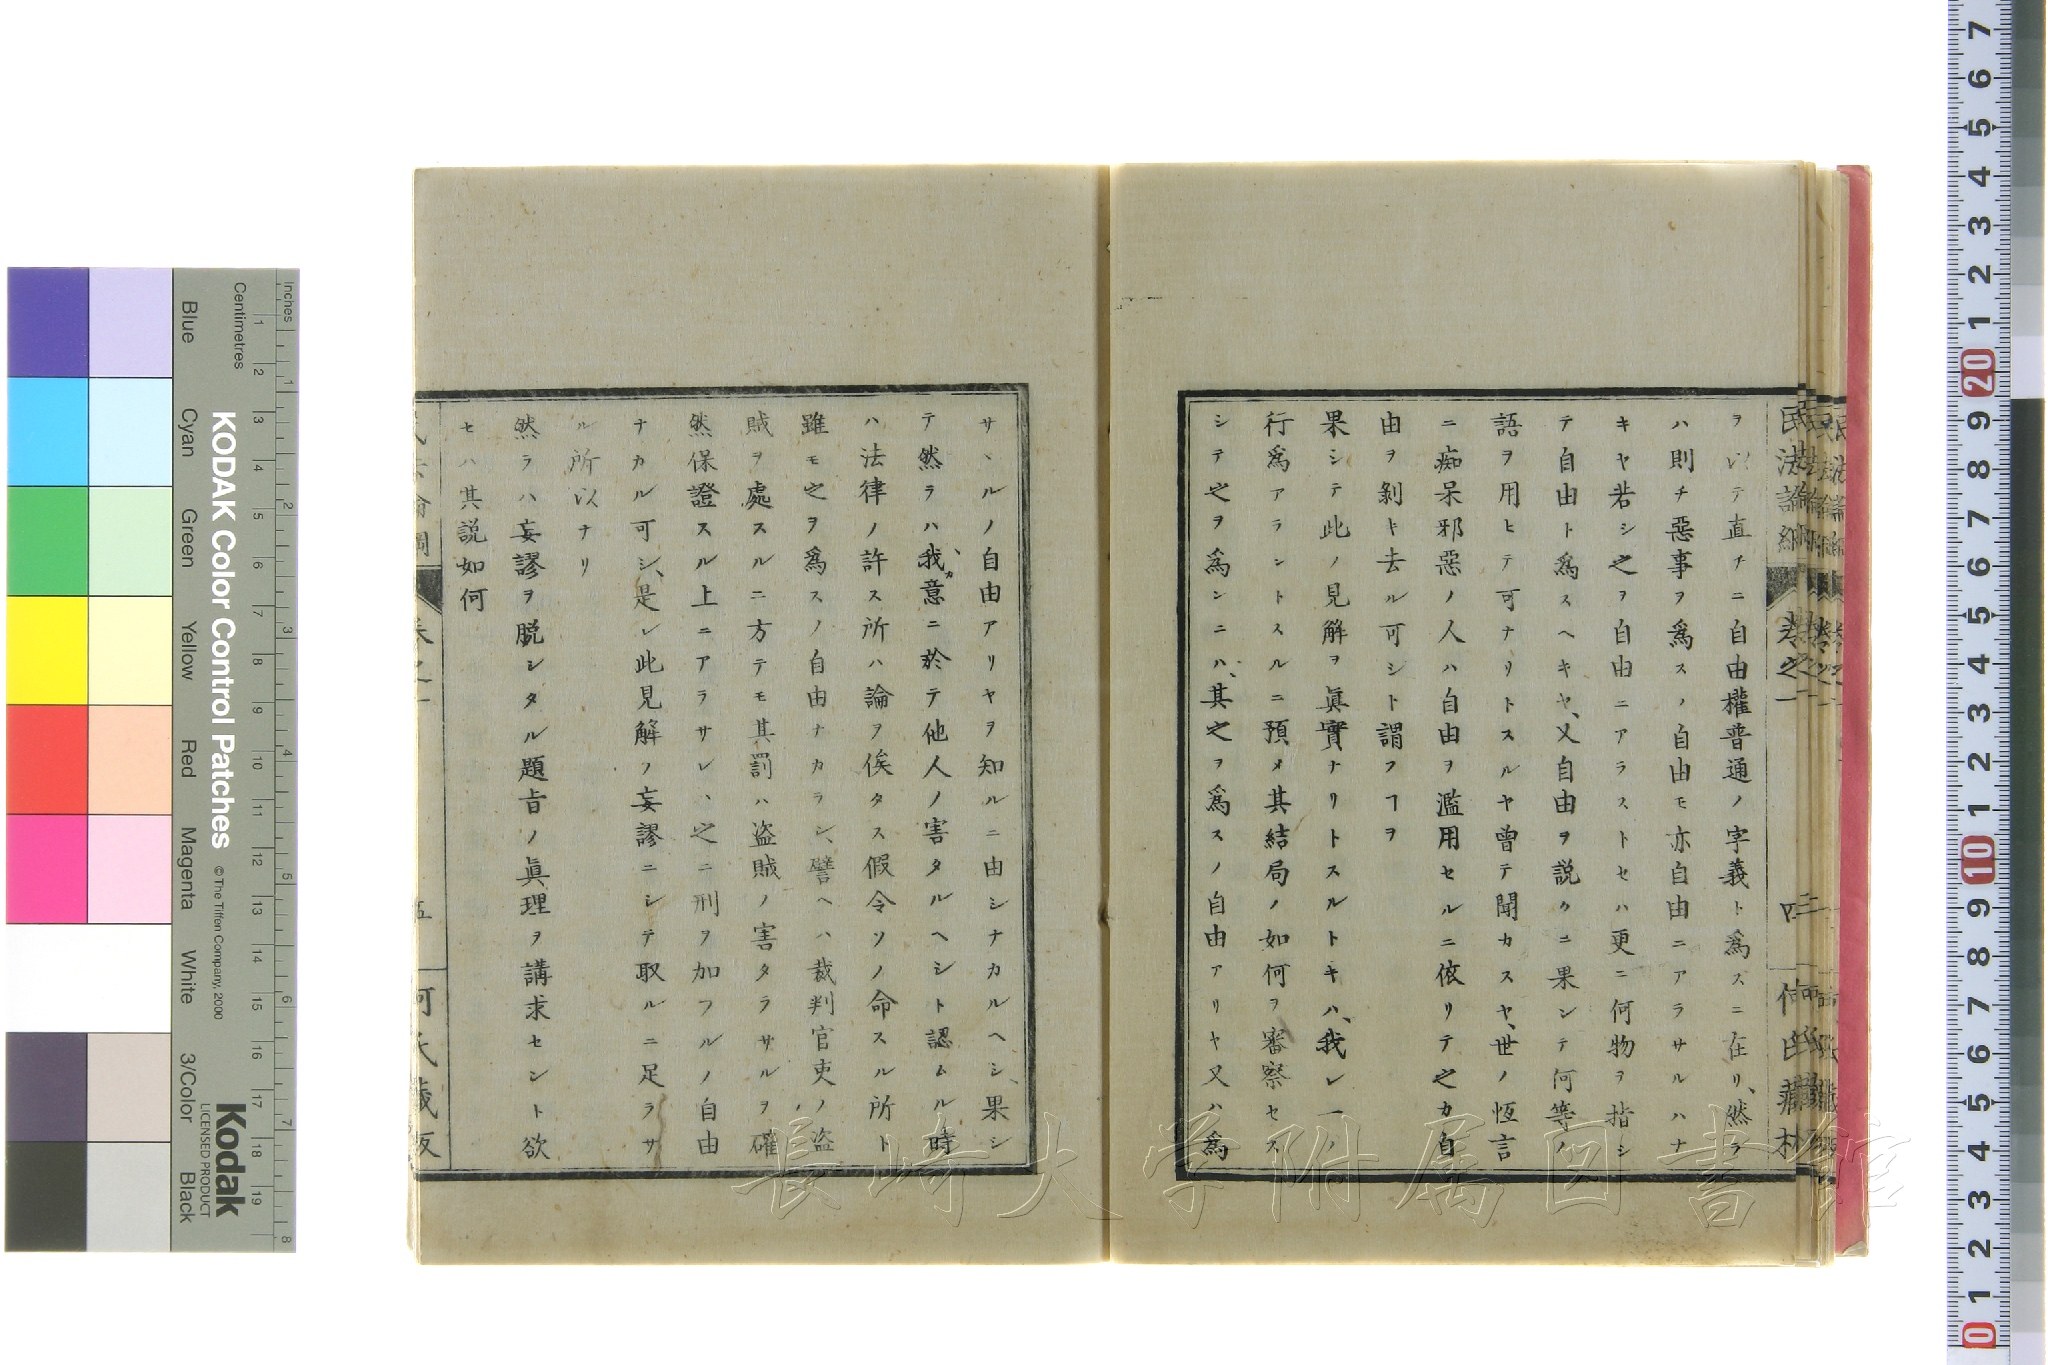 ヲ以テ直チニ自由權普通ノ字義ト爲スニ在リ、然ラ
ハ則チ惡事ヲ爲スノ自由モ亦自由ニアラサルハナ
キヤ若シ之ヲ自由ニアラストセハ更ニ何物ヲ指シ
テ自由ト爲スヘキヤ、又自由ヲ説クニ果シテ何等ノ
語ヲ用ヒテ可ナリトスルヤ曾テ聞カスヤ、世ノ恆言
ニ痴呆邪惡ノ人ハ自由ヲ濫用セルニ依リテ之カ自
由ヲ剝キ去ル可シト謂フヿヲ
果シテ此ノ見解ヲ眞實ナリトスルトキハ、我レ一ノ
行爲アラントスルニ預メ其結局ノ如何ヲ審察セス
シテ之ヲ爲ンニハ、其之ヲ爲スノ自由アリヤ又ハ爲
サヽルノ自由アリヤヲ知ルニ由シナカルヘシ、果シ
テ然ラハ、我カ意ニ於テ他人ノ害タルヘシト認ムル時
ハ法律ノ許ス所ハ論ヲ俟タス假令ソノ命スル所ト
雖モ之ヲ爲スノ自由ナカラン、譬ヘハ裁判官吏ノ盗
賊ヲ處スルニ方テモ其罰ハ盗賊ノ害タラサルヲ確
然保證スル上ニアラサレハ、之ニ刑ヲ加フルノ自由
ナカル可シ、是レ此見解ノ妄謬ニシテ取ルニ足ラサ
ル所以ナリ
然ラハ妄謬ヲ脱シタル題旨ノ眞理ヲ講求セント欲
セハ其説如何
民法論綱
卷之一
四
何氏藏
五
何氏藏版
長崎大学附属図書館
KODAK Color Control Patches
© The Tiffen Company, 2000
Kodak
LICENSED PRODUCT
Inches
Centimetres
Blue Cyan Green Yellow Red Magenta White 3/Color Black